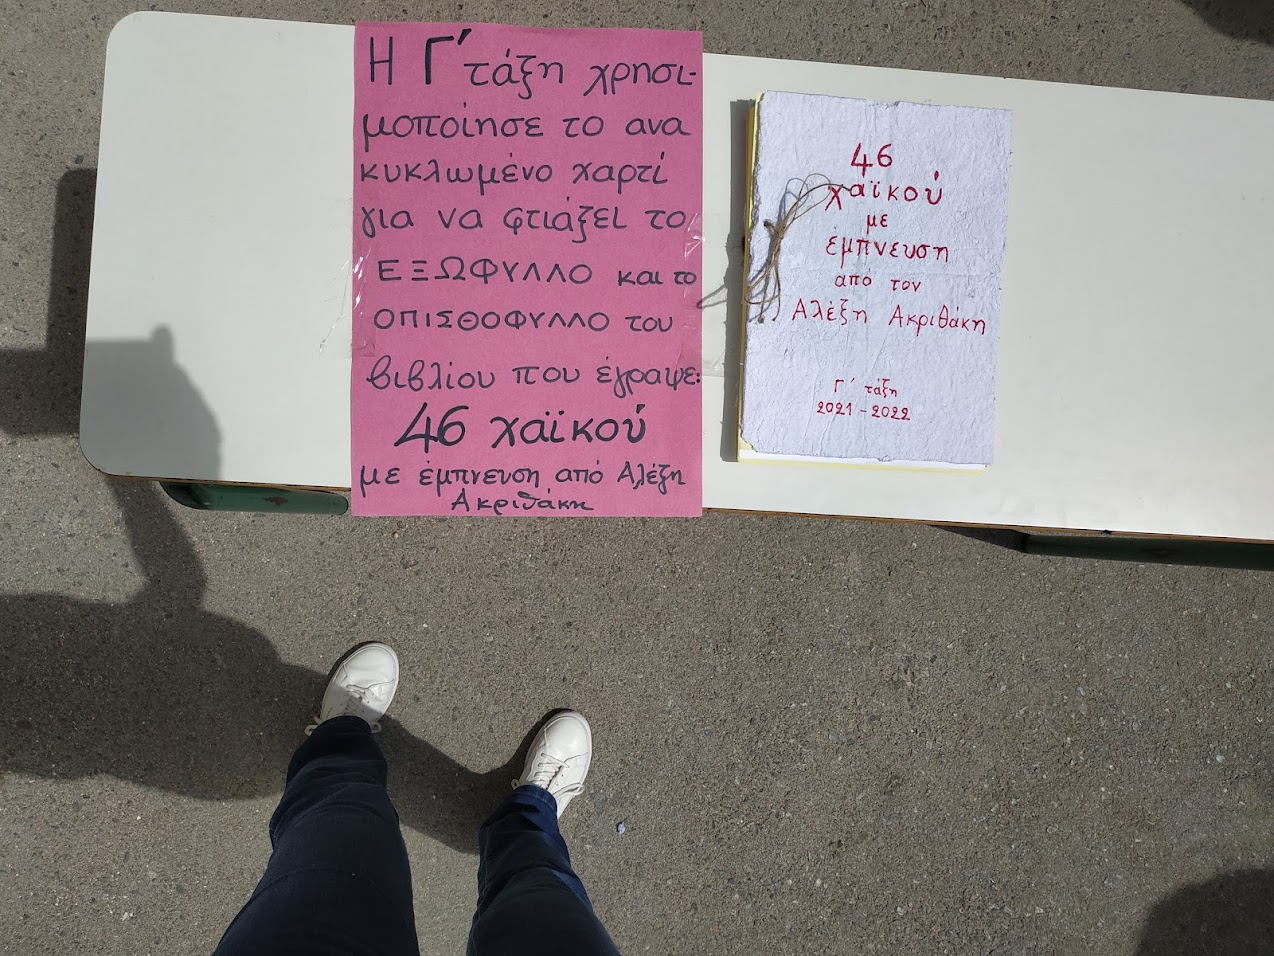 Η Γ΄ τάξη χρησι-
μοποίησε το ανα
κυκλωμένο χαρτί
για να φτιάξει το
ΕΞΩΦΥΛΛΟ και το
ΟΠΙΣΘΟΦΥΛΛΟ του
βιβλίου που έγραψε:
46 χαϊκού
με έμπνευση από Αλέξη
Ακριθάκη
46
χαϊκού
με
έμπνευση
από τον
Αλέξη Ακριθάκη
Γ΄ τάξη
2021-2022